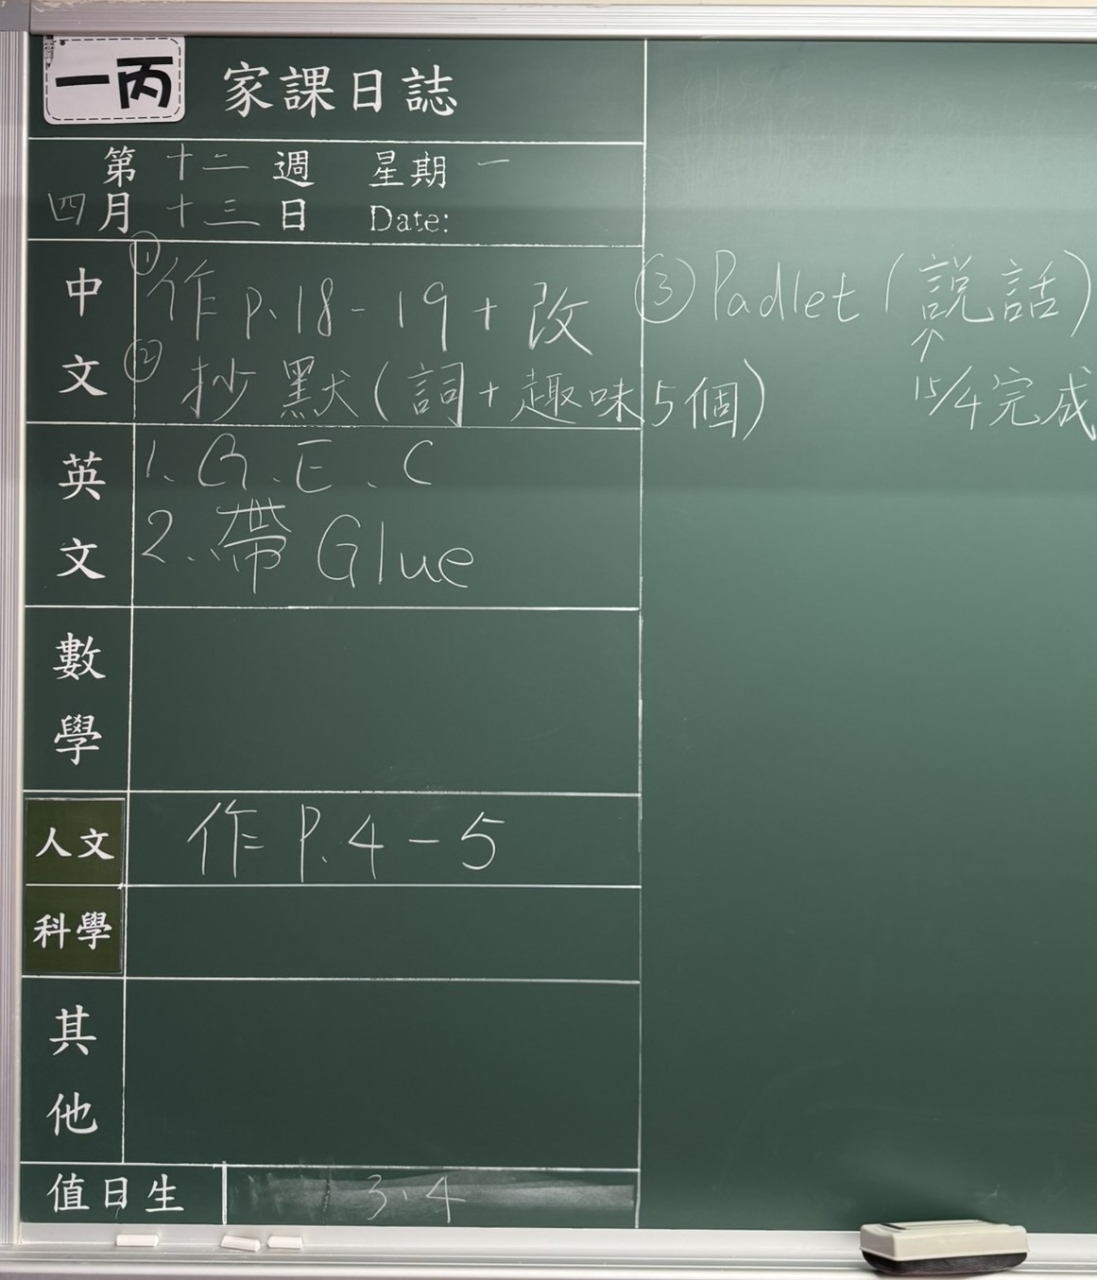 一丙 家課日誌
第 十二 週 星期 一
四月 十三 日 Date:
中文
① 作 P.18-19 + 改 ③ Padlet (說話)
② 抄默 (詞 + 趣味5個) ↑ 15/4完成
英文
1. G.E.C
2. 帶 Glue
數學
人文 作 P.4-5
科學
其他
值日生 3.4